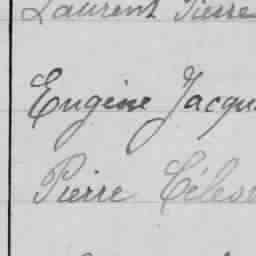 Laurent Pierre
Eugène Jacqu
Pierre Céles